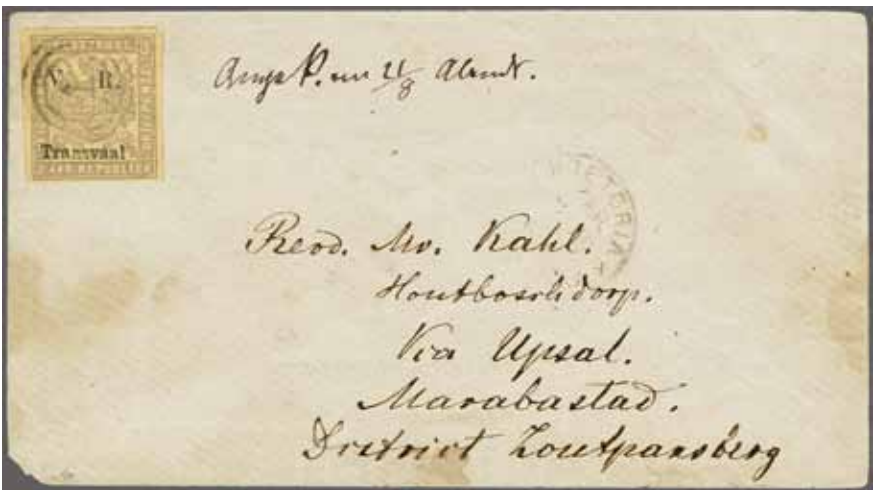 V. R.
Transvaal
21/8 Abends.
PRETORIA
Revd. Mr. Kahl.
Houtboschdorp.
Via Upsal.
Marabastad.
District Zoutpansberg